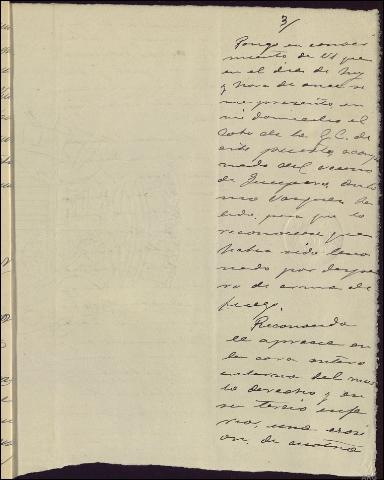 3/
Pongo en conoci
miento de Vd que
en el dia de hoy
y hora de once se
me presentó en
mi domicilio el
Cabo de la G.C. de
este puesto, acompa
ñado del vecino
de
para que lo
reconociese pues
habia sido lesio
nado por dispa
ro de arma de
fuego.
Reconocido
le aprecie en
la cara antero
externa del mus
lo derecho y en
su tercio infe
rior, una erosi
on, de